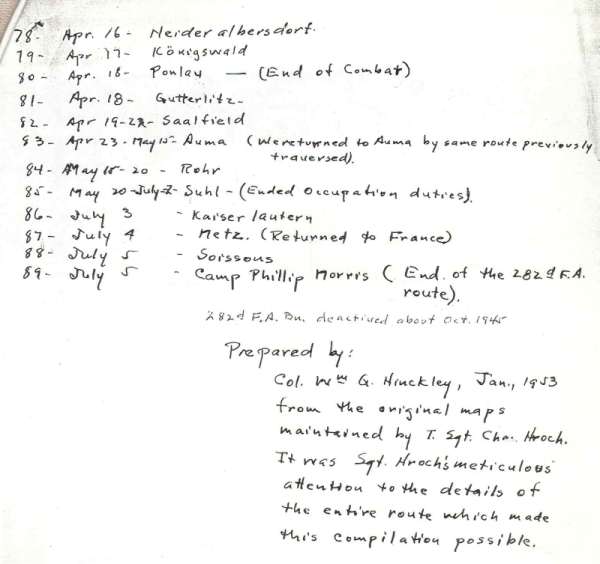 78- Apr. 16- Neideralbersdorf.
79- Apr 17- Königswald
80- Apr. 18- Ponlay — (End of Combat)
81- Apr. 18- Gutterlitz-
82- Apr 19-22- Saalfield
83- Apr 23 - May 15- Auma (We returned to Auma by same route previously
traversed).
84- May 15-20 - Rohr
85- May 20-July 2- Suhl - (Ended Occupation duties).
86- July 3 - Kaiserlautern
87- July 4 - Metz. (Returned to France)
88- July 5 - Soissons
89- July 5 - Camp Phillip Morris (End. of the 282d F.A.
route).
282d F.A. Bn. deactived about Oct. 1945
Prepared by:
Col. Wm G. Hinckley, Jan., 1953
from the original maps
maintained by T. Sgt. Chas. Hroch.
It was Sgt. Hroch's meticulous
attention to the details of
the entire route which made
this compilation possible.